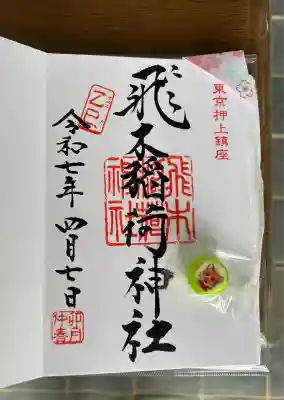 東京押上鎮座
飛木稲荷神社
飛木
稲荷
神社
令和七年 四月七日
卯月
仲春